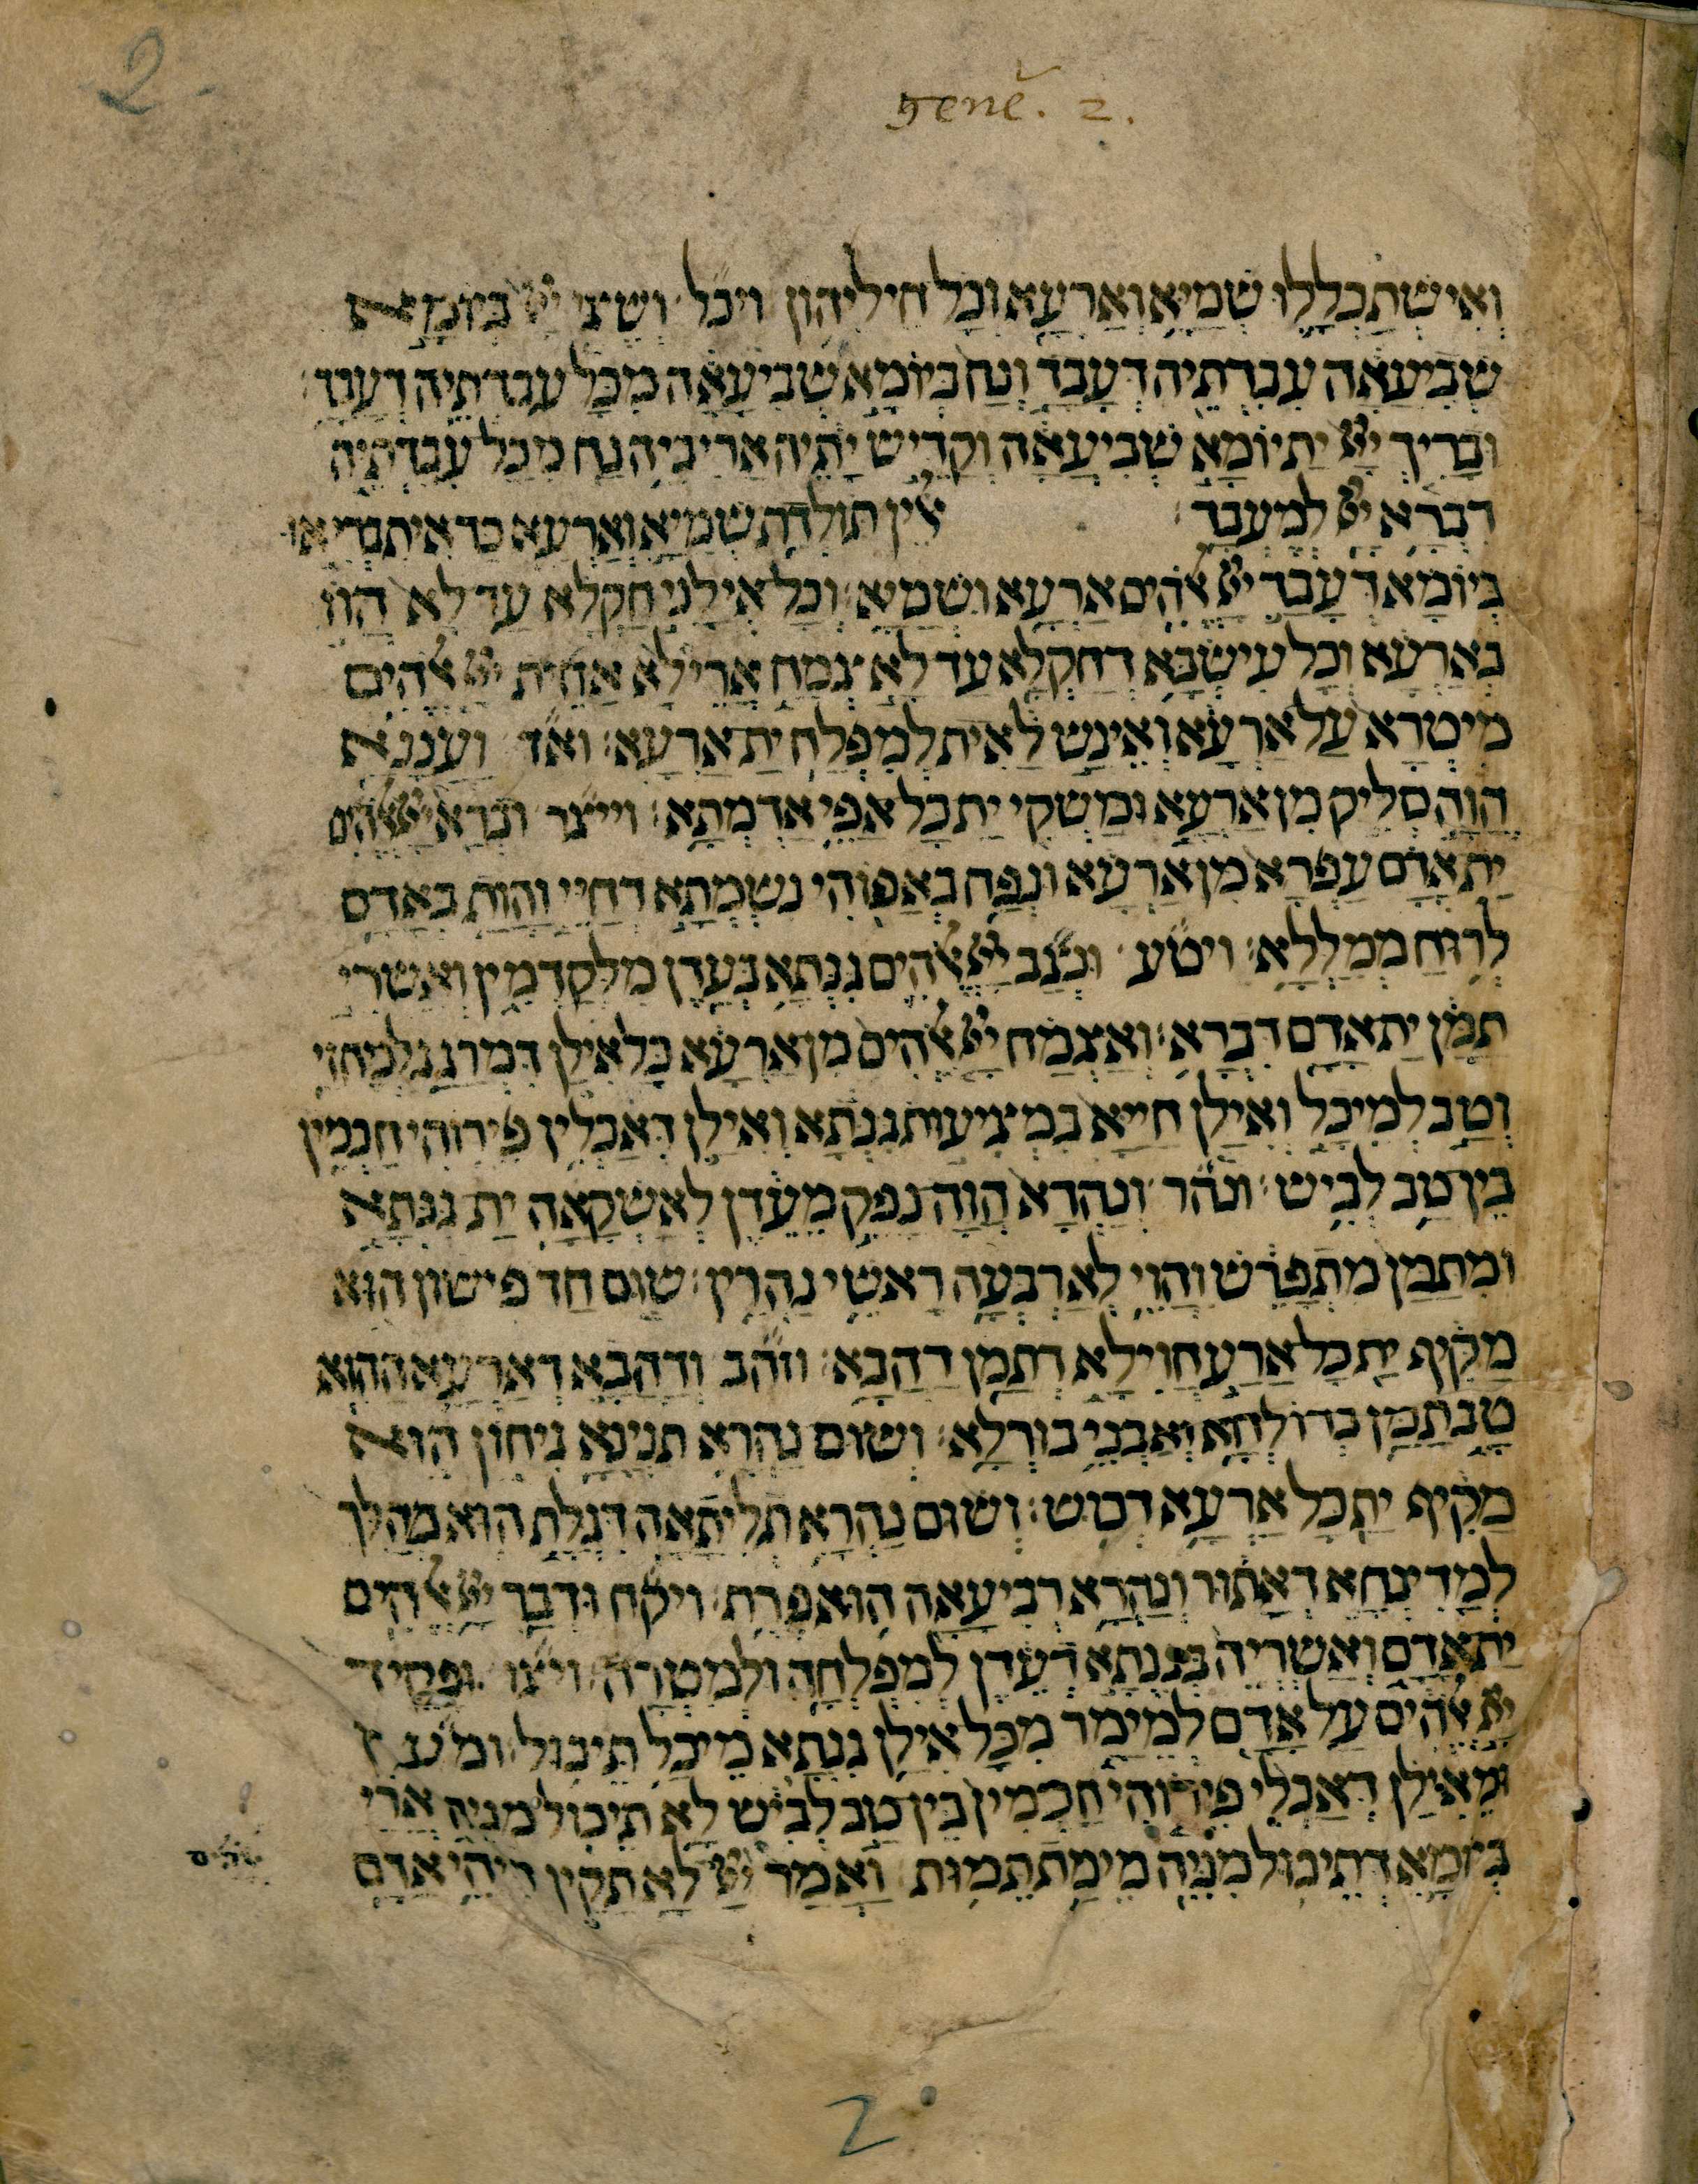 2
gene. 2.
ואישתכללו שמיא וארעא וכל חיליהון ויכל ושיצי יי ביומא
שביעאה עבדתיה דעבד ונח ביומא שביעאה מכל עבדתיה דעבד
ובריך יי ית יומא שביעאה וקדיש יתיה ארי ביה נח מכל עבדתיה
דברא יי למעבד אלין תולדת שמיא וארעא כד איתבריאו
ביומא דעבד יי אלהים ארעא ושמיא וכל אילני חקלא עד לא הוו
בארעא וכל עישבא דחקלא עד לא צמח ארי לא אחית יי אלהים
מיטרא על ארעא ואינש לאית למפלח ית ארעא ואד ועננא
הוה סליק מן ארעא ומשקי ית כל אפי אדמתא וייצר וברא יי אלהים
ית אדם עפרא מן ארעא ונפח באפוהי נשמתא דחיי והות באדם
לרוח ממללא ויטע ונצב יי אלהים גנתא בעדן מלקדמין ואשרי
תמן ית אדם דברא ואצמח יי אלהים מן ארעא כל אילן דמרגג למחזי
וטב למיכל ואילן חייא במציעות גנתא ואילן דאכלין פירוהי חכמין
בין טב לביש ונהר ונהרא הוה נפק מעדן לאשקאה ית גנתא
ומתמן מתפרש והוי לארבעה ראשי נהרין שום חד פישון הוא
מקיף ית כל ארע חוילא דתמן דהבא וזהב ודהבא דארעא ההוא
טב תמן בדולחא ואבני בורלא ושום נהרא תנינא גיחון הוא
מקיף ית כל ארעא דכוש ושום נהרא תליתאה דגלת הוא מהלך
למדינחא דאתור ונהרא רביעאה הוא פרת ויקח ודבר יי אלהים
ית אדם ואשריה בגנתא דעדן למפלחה ולמטרה ויצו ופקיד
יי אלהים על אדם למימר מכל אילן גנתא מיכל תיכול ומעץ
ומאילן דאכלי פירוהי חכמין בין טב לביש לא תיכול מניה ארי
ביומא דתיכול מניה מימת תמות ואמר יי לא תקין דיהי אדם
2